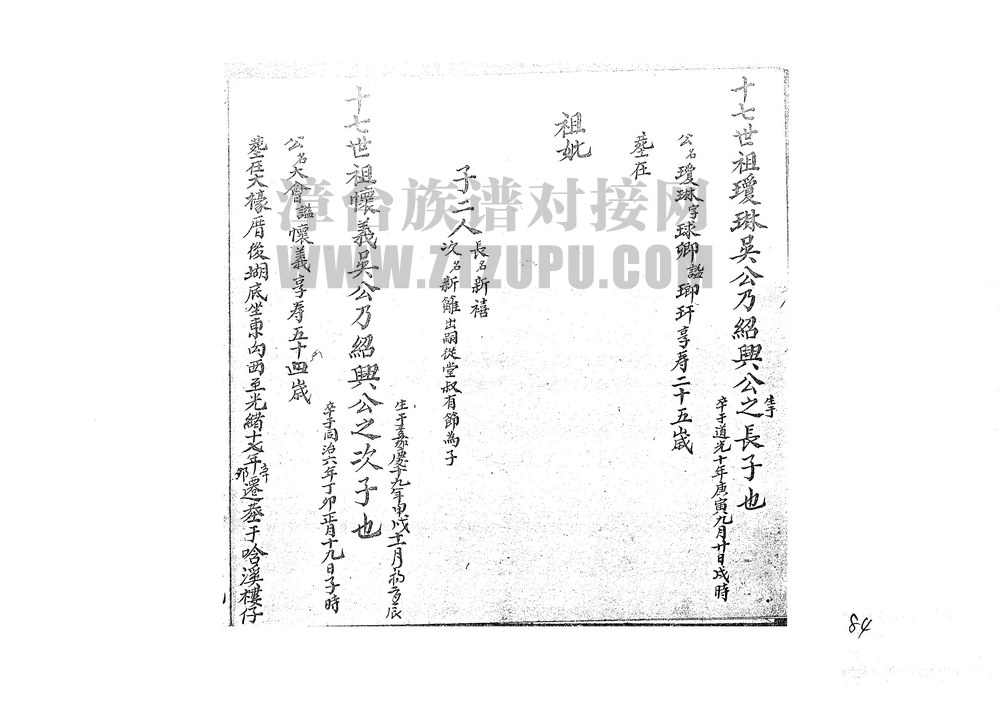 十七世祖瓊琳吳公乃紹興公之長子也
生于
卒于道光十年庚寅九月廿日戌時
公名瓊琳字球卿諡琊玕享壽二十五歲
塟在
祖妣
子二人
長名新禧
次名新雒出嗣從堂叔有節為子
十七世祖懷義吳公乃紹興公之次子也
生于嘉慶十九年甲戌十二月初
辰
卒于同治六年丁卯正月十九日子時
公名大會諡懷義享壽五十四歲
塟在大檺厝後湖底坐東向西至光緒十七年辛卯遷塟于唅溪樓仔
漳台族谱对接网
WWW.ZIZUPU.COM
84